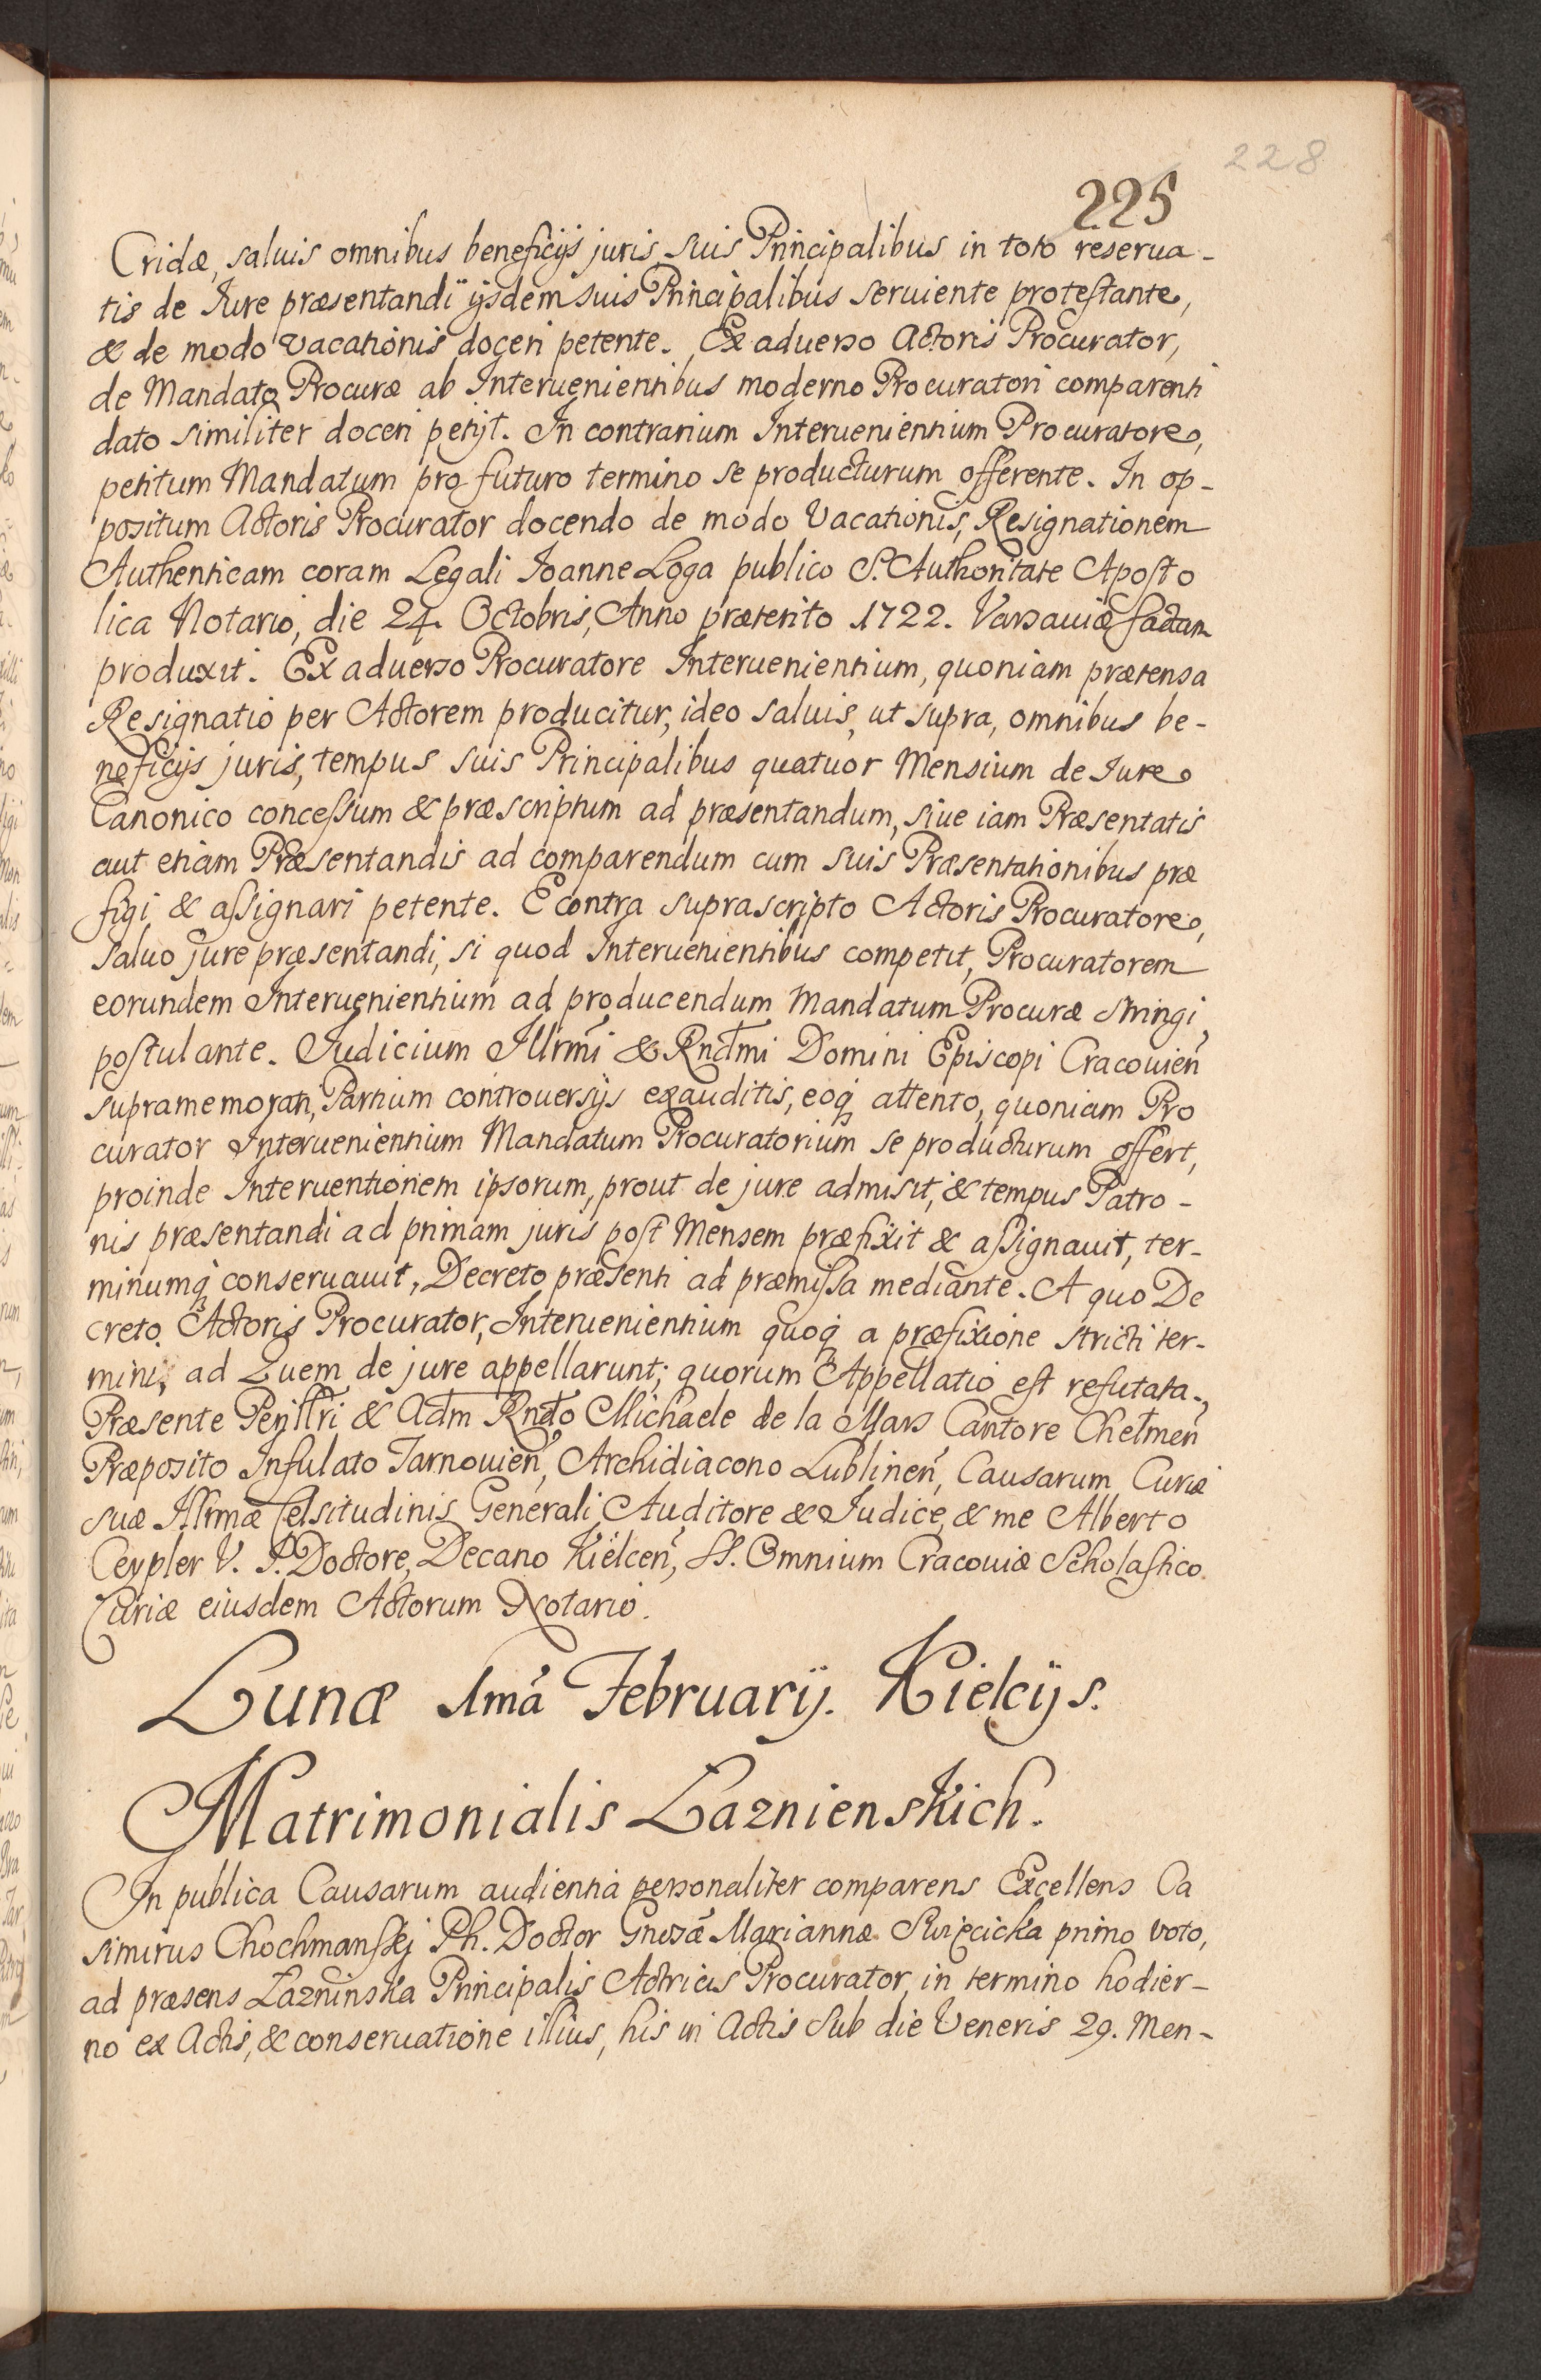 228
225
Cridæ, saluis omnibus beneficijs juris, suis Principalibus in toto reserua-
tis de Iure præsentandi ijsdem suis Principalibus seruiente protestante,
& de modo vacationis doceri petente. Ex aduerso Actoris Procurator,
de Mandato Procuræ ab Interuenientibus moderno Procuratori comparenti
dato similiter doceri petijt. In contrarium Interuenientium Procuratore,
petitum Mandatum pro futuro termino se producturum offerente. In op-
positum Actoris Procurator docendo de modo Vacationis, Resignationem
Authenticam coram Legali Joanne Loga publico S. Authoritate Aposto
lica Notario, die 24. Octobris, Anno præterito 1722. Varsauiæ factam
produxit. Ex aduerso Procuratore Interuenientium, quoniam prætensa
Resignatio per Actorem producitur, ideo saluis, ut supra, omnibus be-
neficijs juris, tempus suis Principalibus quatuor Mensium de Iure
Canonico concessum & præscriptum ad præsentandum, siue iam Præsentatis
aut etiam Præsentandis ad comparendum cum suis Præsentationibus præ
figi & assignari petente. E contra suprascripto Actoris Procuratore,
saluo jure præsentandi, si quod Interuenientibus competit, Procuratorem
eorundem Interuenientium ad producendum Mandatum Procuræ stringi
postulante. Judicium Illrmi & Rndmi Domini Episcopi Cracouien
supramemorati, Partium controuersijs exauditis, eoq attento, quoniam Pro
curator Interuenientium Mandatum Procuratorium se producturum offert,
proinde Interuentionem ipsorum, prout de jure admisit, & tempus Patro-
nis præsentandi ad primam juris post Mensem præfixit & assignauit, ter-
minumq conseruauit, Decreto præsenti ad præmissa mediante. A quo De
creto Actoris Procurator, Interuenientium quoq a præfixione stricti ter-
mini, ad Quem de jure appellarunt; quorum Appellatio est refutata.
Præsente Perillri & Adm Rndo Michaele de la Mars Cantore Chełmen
Præposito Infulato Tarnouien, Archidiacono Lublinen, Causarum Curiæ
suæ Illrmæ Celsitudinis Generali Auditore & Judice, & me Alberto
Ceypler V. J. Doctore, Decano Kielcen, SS. Omnium Cracouiæ Scholastico
Curiæ eiusdem Actorum Notario.
Lunæ 1mâ Februarij. Kielcijs.
Matrimonialis Łaznienskich.
In publica Causarum audientia personaliter comparens Excellens Ca
simirus Chochmanskj Ph. Doctor Gnosæ Mariannæ Swięcicka primo voto,
ad præsens Łazninska Principalis Actricis Procurator, in termino hodier-
no ex Actis, & conseruatione illius, his in Actis sub die Veneris 29. Men-